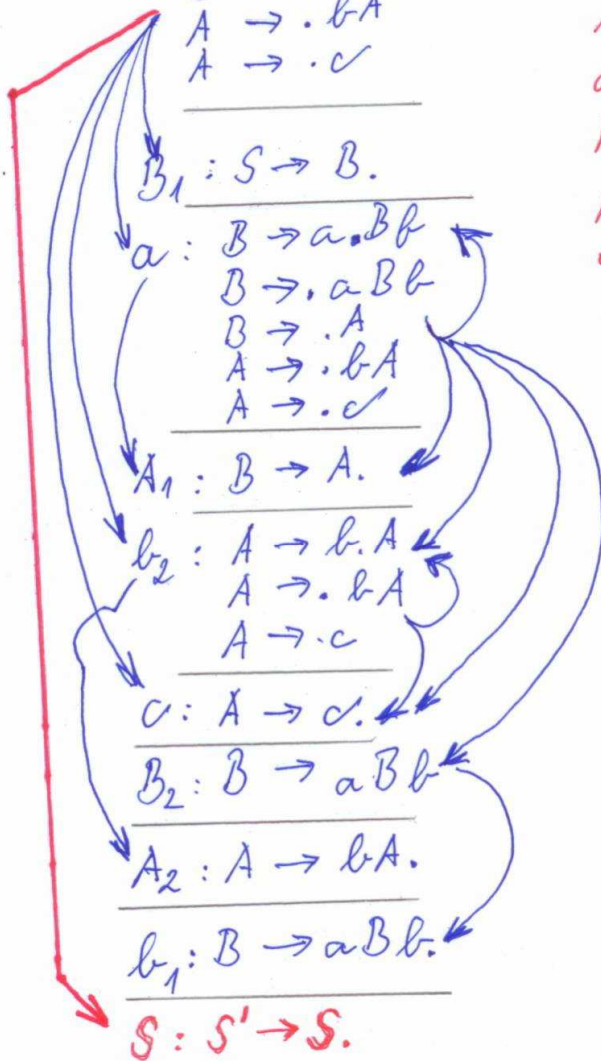 A → . bA
A → . c
B₁ : S → B.
a : B → a.Bb
B → . aBb
B → . A
A → . bA
A → . c
A₁ : B → A.
b₂ : A → b.A
A → . bA
A → . c
c : A → c.
B₂ : B → aBb
A₂ : A → bA.
b₁ : B → aBb.
S : S' → S.